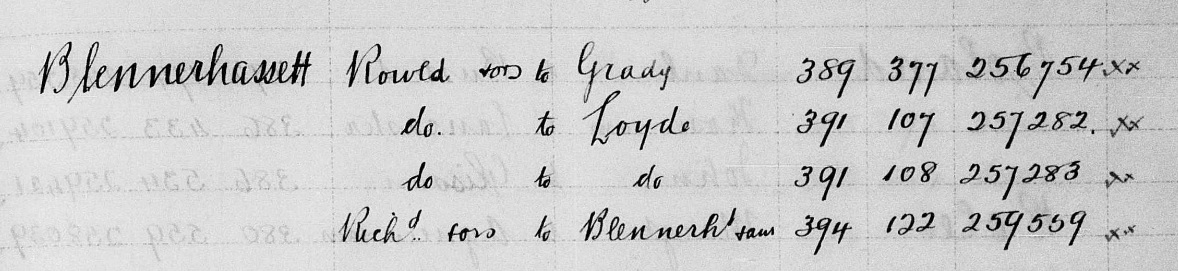 Blennerhassett Rowld ors to Grady 389 377 256754 xx
do. to Loyde 391 107 257282. xx
do to do 391 108 257283 xx
Richd. ors to Blennerht 394 122 259559 xx